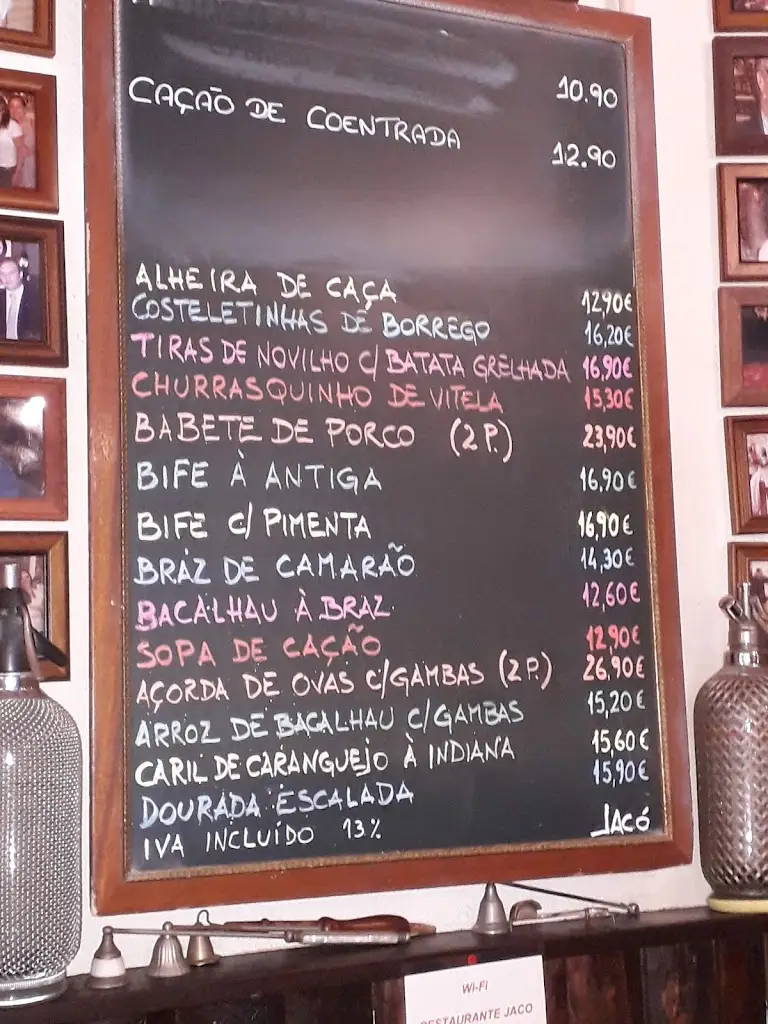 10.90
CAÇÃO DE COENTRADA 12.90
ALHEIRA DE CAÇA 12,90€
COSTELETINHAS DE BORREGO 16,20€
TIRAS DE NOVILHO C/ BATATA GRELHADA 16,90€
CHURRASQUINHO DE VITELA 15,30€
BABETE DE PORCO (2 P.) 23,90€
BIFE À ANTIGA 16,90€
BIFE C/ PIMENTA 16,90€
BRÁZ DE CAMARÃO 14,30€
BACALHAU À BRAZ 12,60€
SOPA DE CAÇÃO 12,90€
AÇORDA DE OVAS C/GAMBAS (2 P.) 26,90€
ARROZ DE BACALHAU C/GAMBAS 15,20€
CARIL DE CARANGUEJO À INDIANA 15,60€
DOURADA ESCALADA 15,90€
IVA INCLUÍDO 13% JACÓ
WI-FI
RESTAURANTE JACO